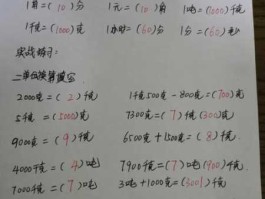 1角=(10)分 1元=(10)角 1吨=(1000)千克
1千克=(1000)克 1小时=(60)分 1分=(60)秒
实战练习:
二、单位换算填空
2000克=(2)千克 1千克500克-800克=(700)克
5千克=(5000)克 7300克=(7)千克(300)克
9000克=(9)千克 6500克+1500克=(8)千克
4000千克=(4)吨 7900千克=(7)吨(900)千克
7000千克=(7)吨 3吨+1000克=(3001)千克